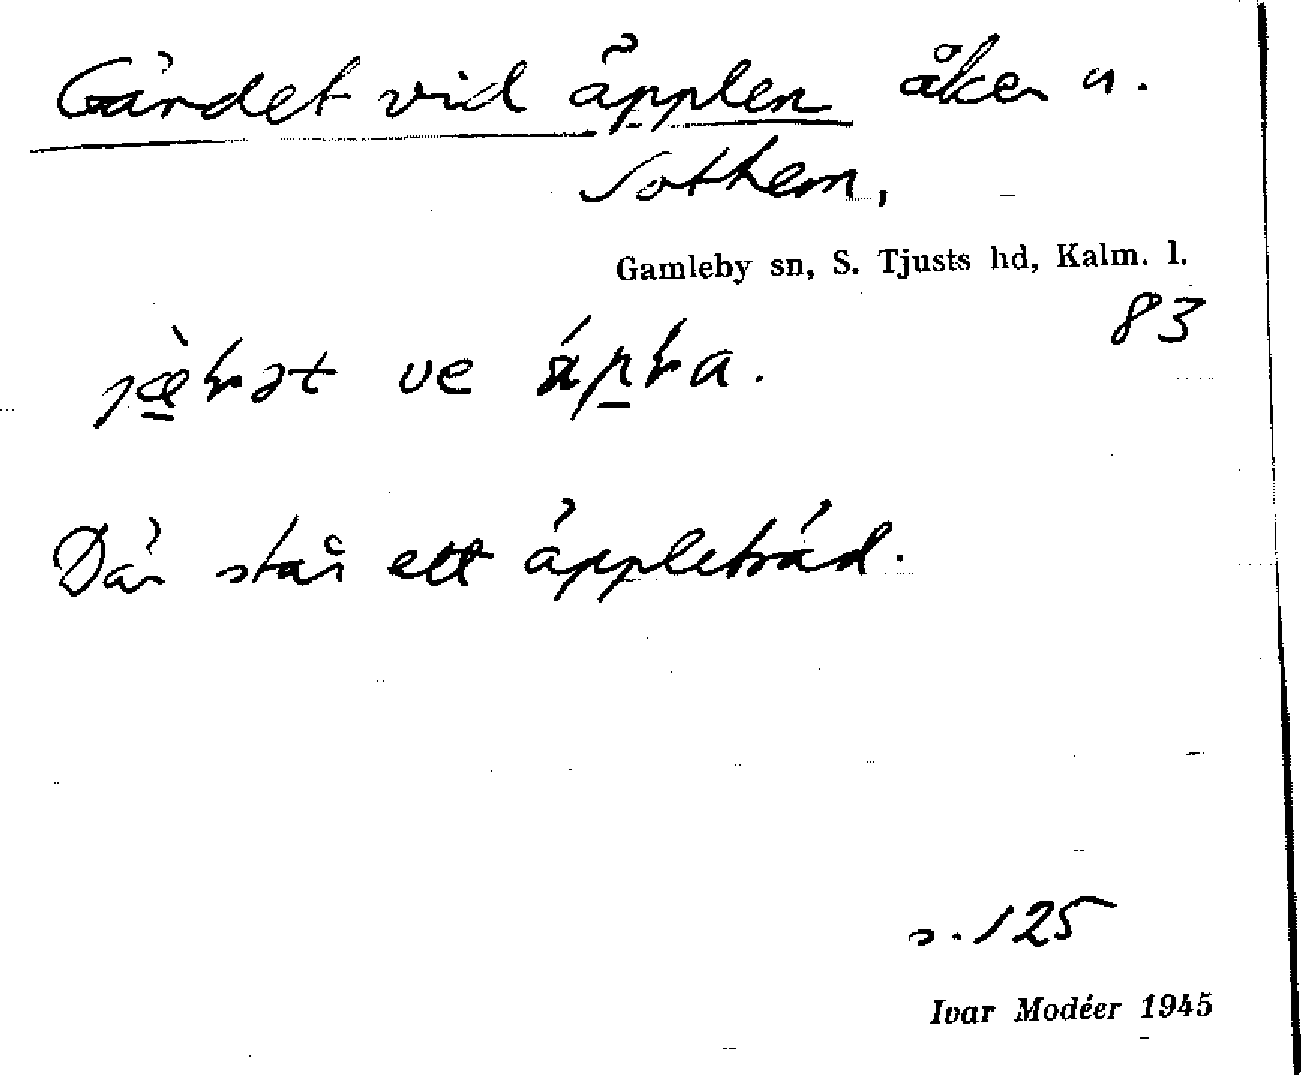 Gärdet vid äpplen åker u.
Sothem,
Gamleby sn, S. Tjusts hd, Kalm. l.
83
ve
Där står ett äppleträd.
s. 125
Ivar Modéer 1945